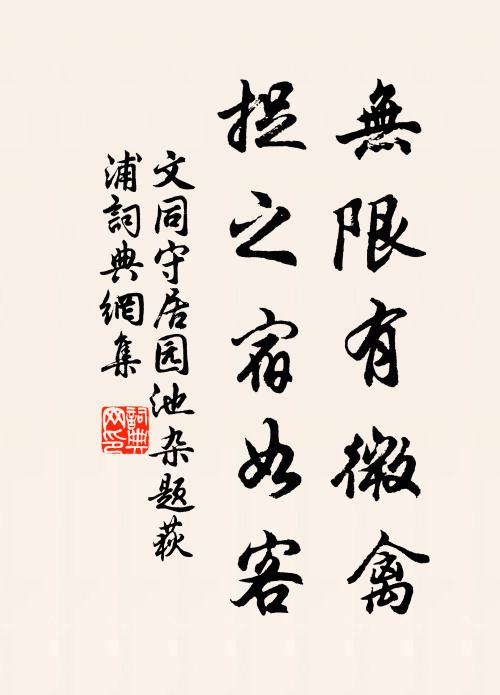 無限有微禽
捉之宿如客
文同守居园池杂题荻
浦詞典網集
詞典网印